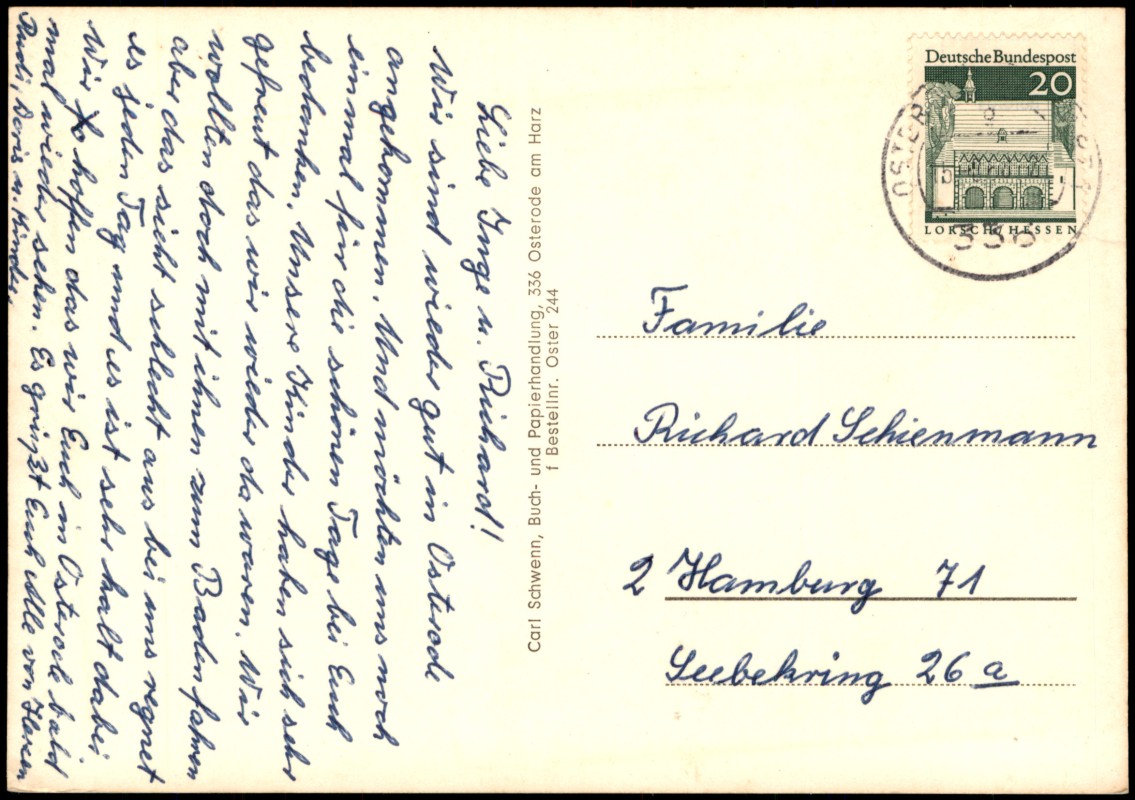 Liebe Inge u. Richard!
Wir sind wieder gut in Osterode
angekommen. Und möchten uns noch
einmal für die schönen Tage bei Euch
bedanken. Unsere Kinder haben sich sehr
gefreut das wir wieder da waren. Wir
wollten doch mit ihnen zum Baden fahren
aber das sieht schlecht aus bei uns regnet
es jeden Tag und es ist sehr kalt dabei
Wir hoffen das wir Euch in Osterode bald
mal wieder sehen. Es grüßt Euch Alle von Herzen
Rudi, Doris u. Kinder.
Carl Schwenn, Buch- und Papierhandlung, 336 Osterode am Harz
f Bestellnr. Oster 244
Deutsche Bundespost
20
LORSCH/HESSEN
336
Familie
Richard Schienmann
2 Hamburg 71
Seebekring 26 a